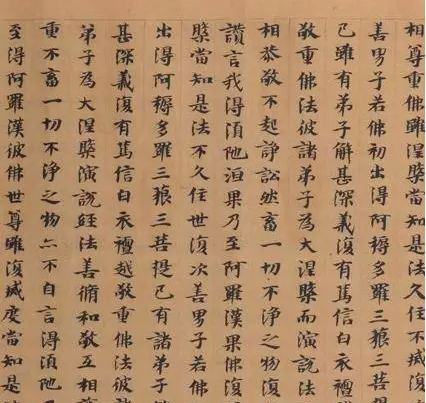 相尊重佛雖涅槃當知是法久住不滅復
善男子若佛初出得阿耨多羅三藐三菩提
已雖有弟子解甚深義復有篤信白衣檀
敬重佛法彼諸弟子為大涅槃而演說法
相恭敬不起諍訟然畜一切不淨之物復
讚言我得須陁洹果乃至阿羅漢果佛復
槃當知是法不久住世復次善男子若佛
出得阿耨多羅三藐三菩提已有諸弟子
甚深義復有篤信白衣檀越敬重佛法彼
弟子為大涅槃演說經法善脩和敬互相
重不畜一切不淨之物亦不自言得須陁
至得阿羅漢彼佛世尊雖復滅度當知是